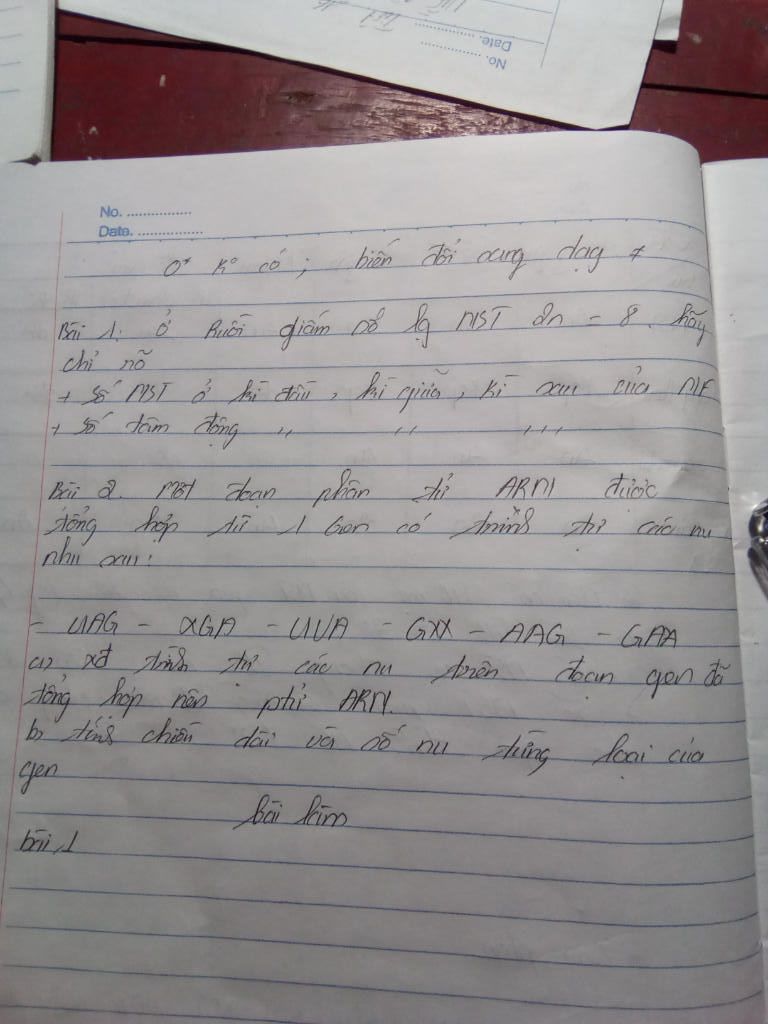 No. ................
Date. ................
No. ................
Date. ................
K° có ; biến đổi xang dạg
Bài 1: ở Ruồi giấm số lg NST 2n = 8. hãy
chỉ rõ
+ số NST ở kì đầu, kì giữa, kì xau của NF
+ số tâm động ,, ,, ,,,
Bài 2. Một đoạn phân tử ARN được
tổng hợp từ 1 Gen có trình tự các nu
như xau:
- UAG - XGA - UUA - GXX - AAG - GAA
a, xđ trình tự các nu trên đoạn gen đã
tổng hợp nên phtử ARN.
b, tính chiều dài và số nu từng loại của
gen
bài làm
bài 1